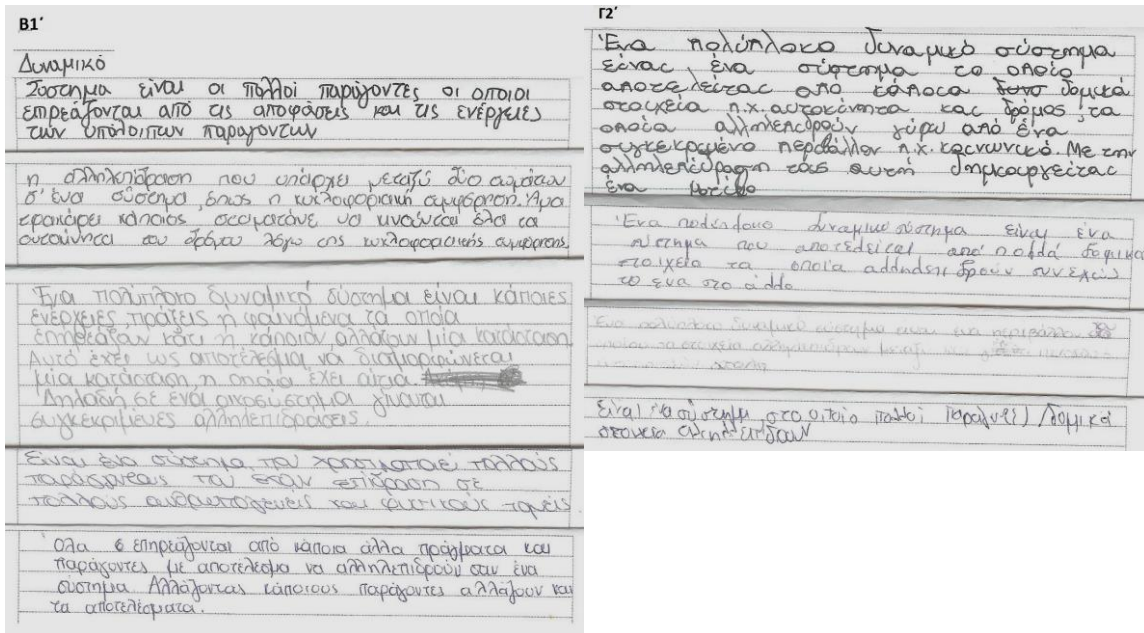 Β1΄
Δυναμικό
Σύστημα είναι οι πολλοί παράγοντες οι οποιοι
επιρεάζονται από τις αποφάσεις και τις ενέργειες
των υπόλοιπων παραγοντων
η αλληλεπίδραση που υπάρχει μεταξύ δύο σωμάτων
σ' ένα σύστημα, όπως η κυκλοφοριακή συμφόρηση. Άμα
τρακάρει κάποιος σταματάνε να κινούνται όλα τα
αυτοκίνητα του δρόμου λόγω της κυκλοφοριακής συμφόρησης
Ένα πολύπλοκο δυναμικό σύστημα είναι κάποιες
ενέργειες, πράξεις ή φαινόμενα τα οποία
επηρεάζουν κάτι ή κάποιον, αλλάζουν μία κατάσταση
Αυτό έχει ως αποτέλεσμα να διαμορφώνεται
μία κατάσταση, η οποία έχει αίτια.
Δηλαδή σε ένα οικοσύστημα γίνονται
συγκεκριμένες αλληλεπιδράσεις
Είναι ένα σύστημα που χρησιμοποιεί πολλούς
παράγοντες που έχουν επίδραση σε
πολλούς ανθρωπογενείς και φυσικούς τομείς.
Όλα επηρεάζονται από κάποια άλλα πράγματα και
παράγοντες με αποτέλεσμα να αλληλεπιδρούν σαν ένα
σύστημα. Αλλάζοντας κάποιους παράγοντες αλλάζουν και
τα αποτελέσματα.
Γ2΄
Ένα πολύπλοκο δυναμικό σύστημα
είναι ένα σύστημα το οποίο
αποτελείται από κάποια δομικά
στοιχεία π.χ. αυτοκίνητα και δρόμος, τα
οποία αλληλεπιδρούν γύρω από ένα
συγκεκριμένο περιβάλλον π.χ. κοινωνικό. Με την
αλληλεπίδραση τους αυτή δημιουργείται
ένα μοτίβο
Ένα πολύπλοκο δυναμικό σύστημα είναι ένα
σύστημα που αποτελείται από πολλά δομικα
στοιχεία τα οποία αλληλεπιδρούν συνεχώς
το ενα στο άλλο
Ενα πολύπλοκο δυναμικο σύστημα ειναι ενα περιβάλλον
οποιου τα στοιχεία αλληλεπιδρουν μεταξύ
Είναι ένα σύστημα, στο οποίο πολλοί παράγοντες / δομικά
στοιχεία αλληλεπιδρουν